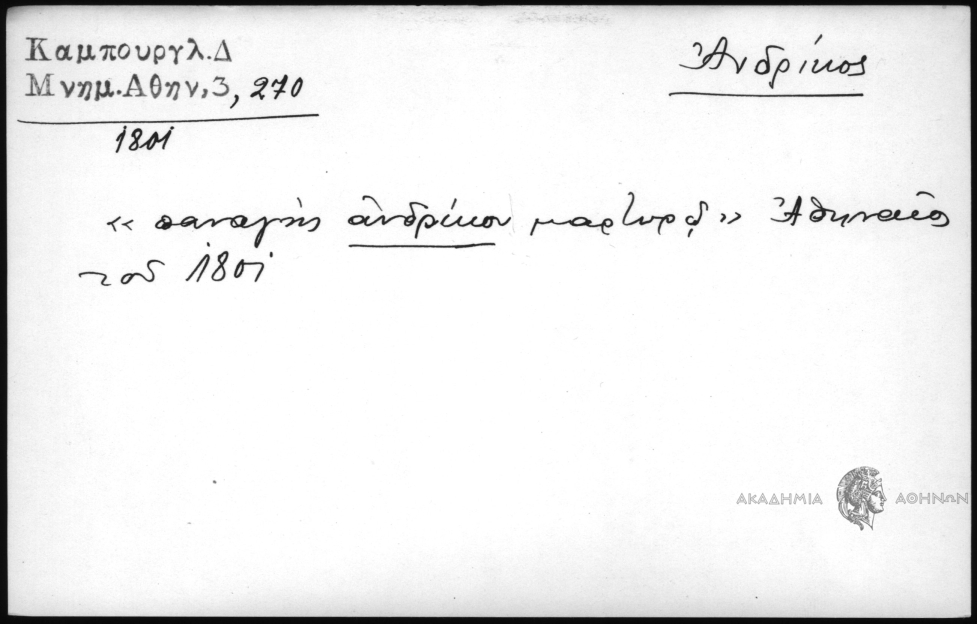 Καμπουργλ.Δ
Μνημ.Αθην,3, 270
1801
Ἀνδρίκος
« παναγής ἀνδρίκου μαρτυρῶ » Ἀθηναῖος
τοῦ 1801
ΑΚΑΔΗΜΙΑ ΑΘΗΝΩΝ